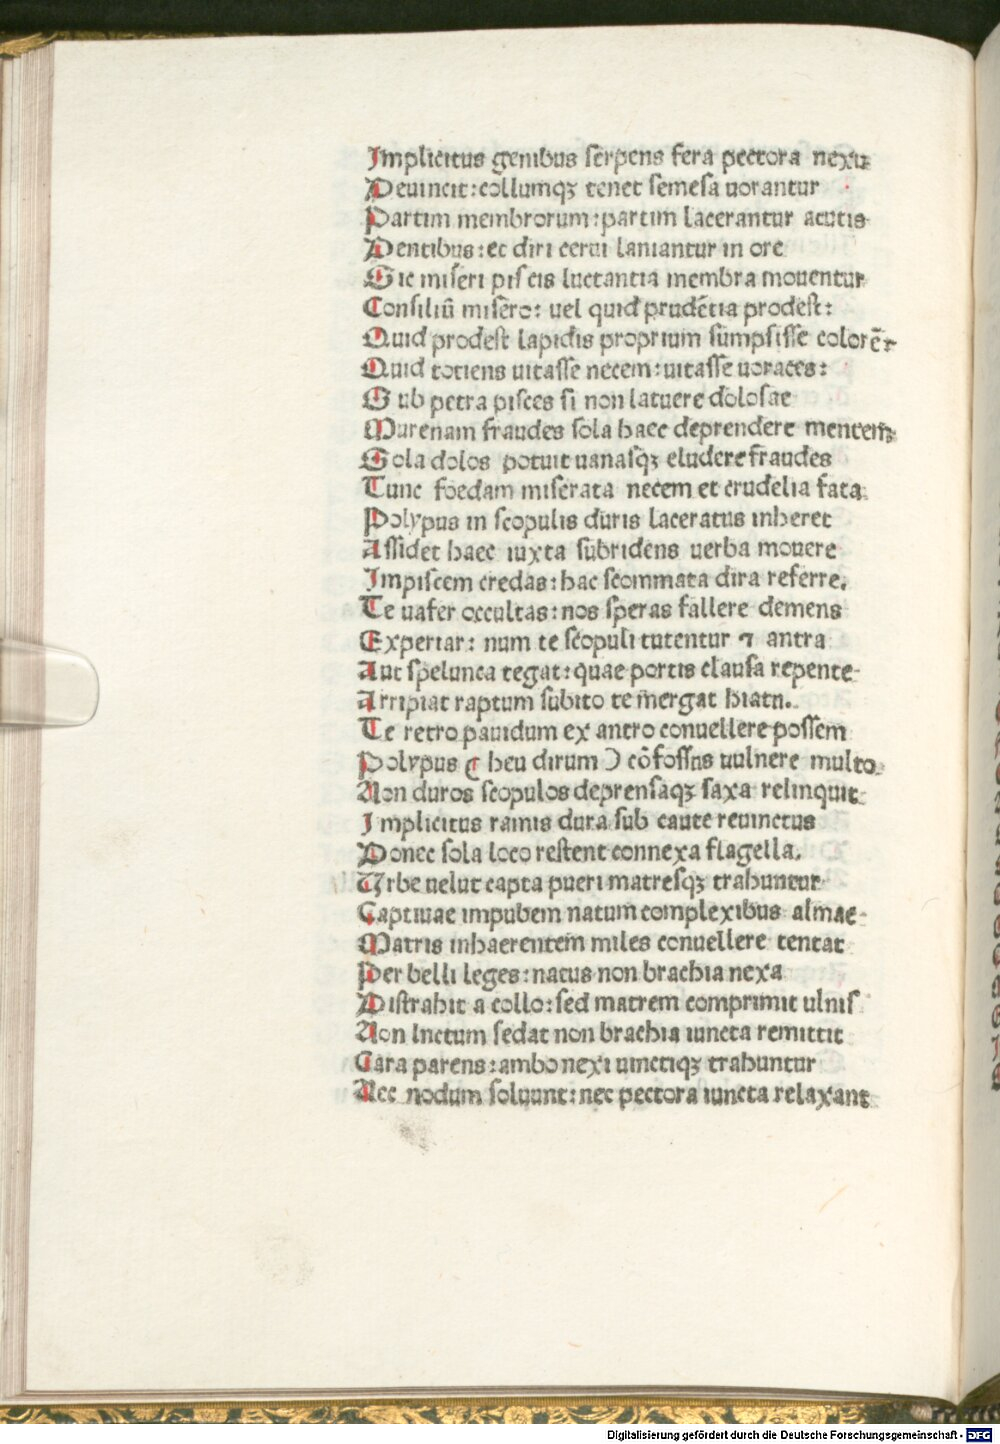 Implicitus genibus serpens fera pectora nexu
Deuincit: collumqꝫ tenet semesa uorantur
Partim membrorum: partim lacerantur acutis
Dentibus: ec diri cerui laniantur in ore
Sic miseri piscis luctantia membra mouentur
Consiliū misero: uel quid prudētia prodest:
Quid prodest lapidis proprium sumpsisse colorē:
Quid totiens uitasse necem: uitasse uoraces:
Sub petra pisces si non latuere dolosae
Murenam fraudes sola haec deprendere mentem:
Sola dolos potuit uanasqꝫ eludere fraudes
Tunc foedam miserata necem et crudelia fata:
Polypus in scopulis duris laceratus inheret
Assidet haec iuxta subridens uerba mouere
Impiscem credas: hac scommata dira referre.
Te uafer occultas: nos speras fallere demens
Experiar: num te scopuli tutentur ⁊ antra
Aut spelunca tegat: quae portis clausa repente
Arripiat raptum subito te mergat hiatu.
Te retro pauidum ex antro conuellere possem
Polypus ( heu dirum ) cōfossus uulnere multo
Non duros scopulos deprensaqꝫ saxa relinquit
Implicitus ramis dura sub caute reuinctus
Donec sola loco restent connexa flagella.
Urbe uelut capta pueri matresqꝫ trahuntur
Captiuae impubem natum complexibus almae
Matris inhaerentem miles conuellere tentat
Per belli leges: natus non brachia nexa
Distrahit a collo: sed matrem comprimit ulnis
Non luctum sedat non brachia iuncta remittit
Cara parens: ambo nexi uinctiqꝫ trahuntur
Nec nodum soluunt: nec pectora iuncta relaxant
Digitalisierung gefördert durch die Deutsche Forschungsgemeinschaft - DFG